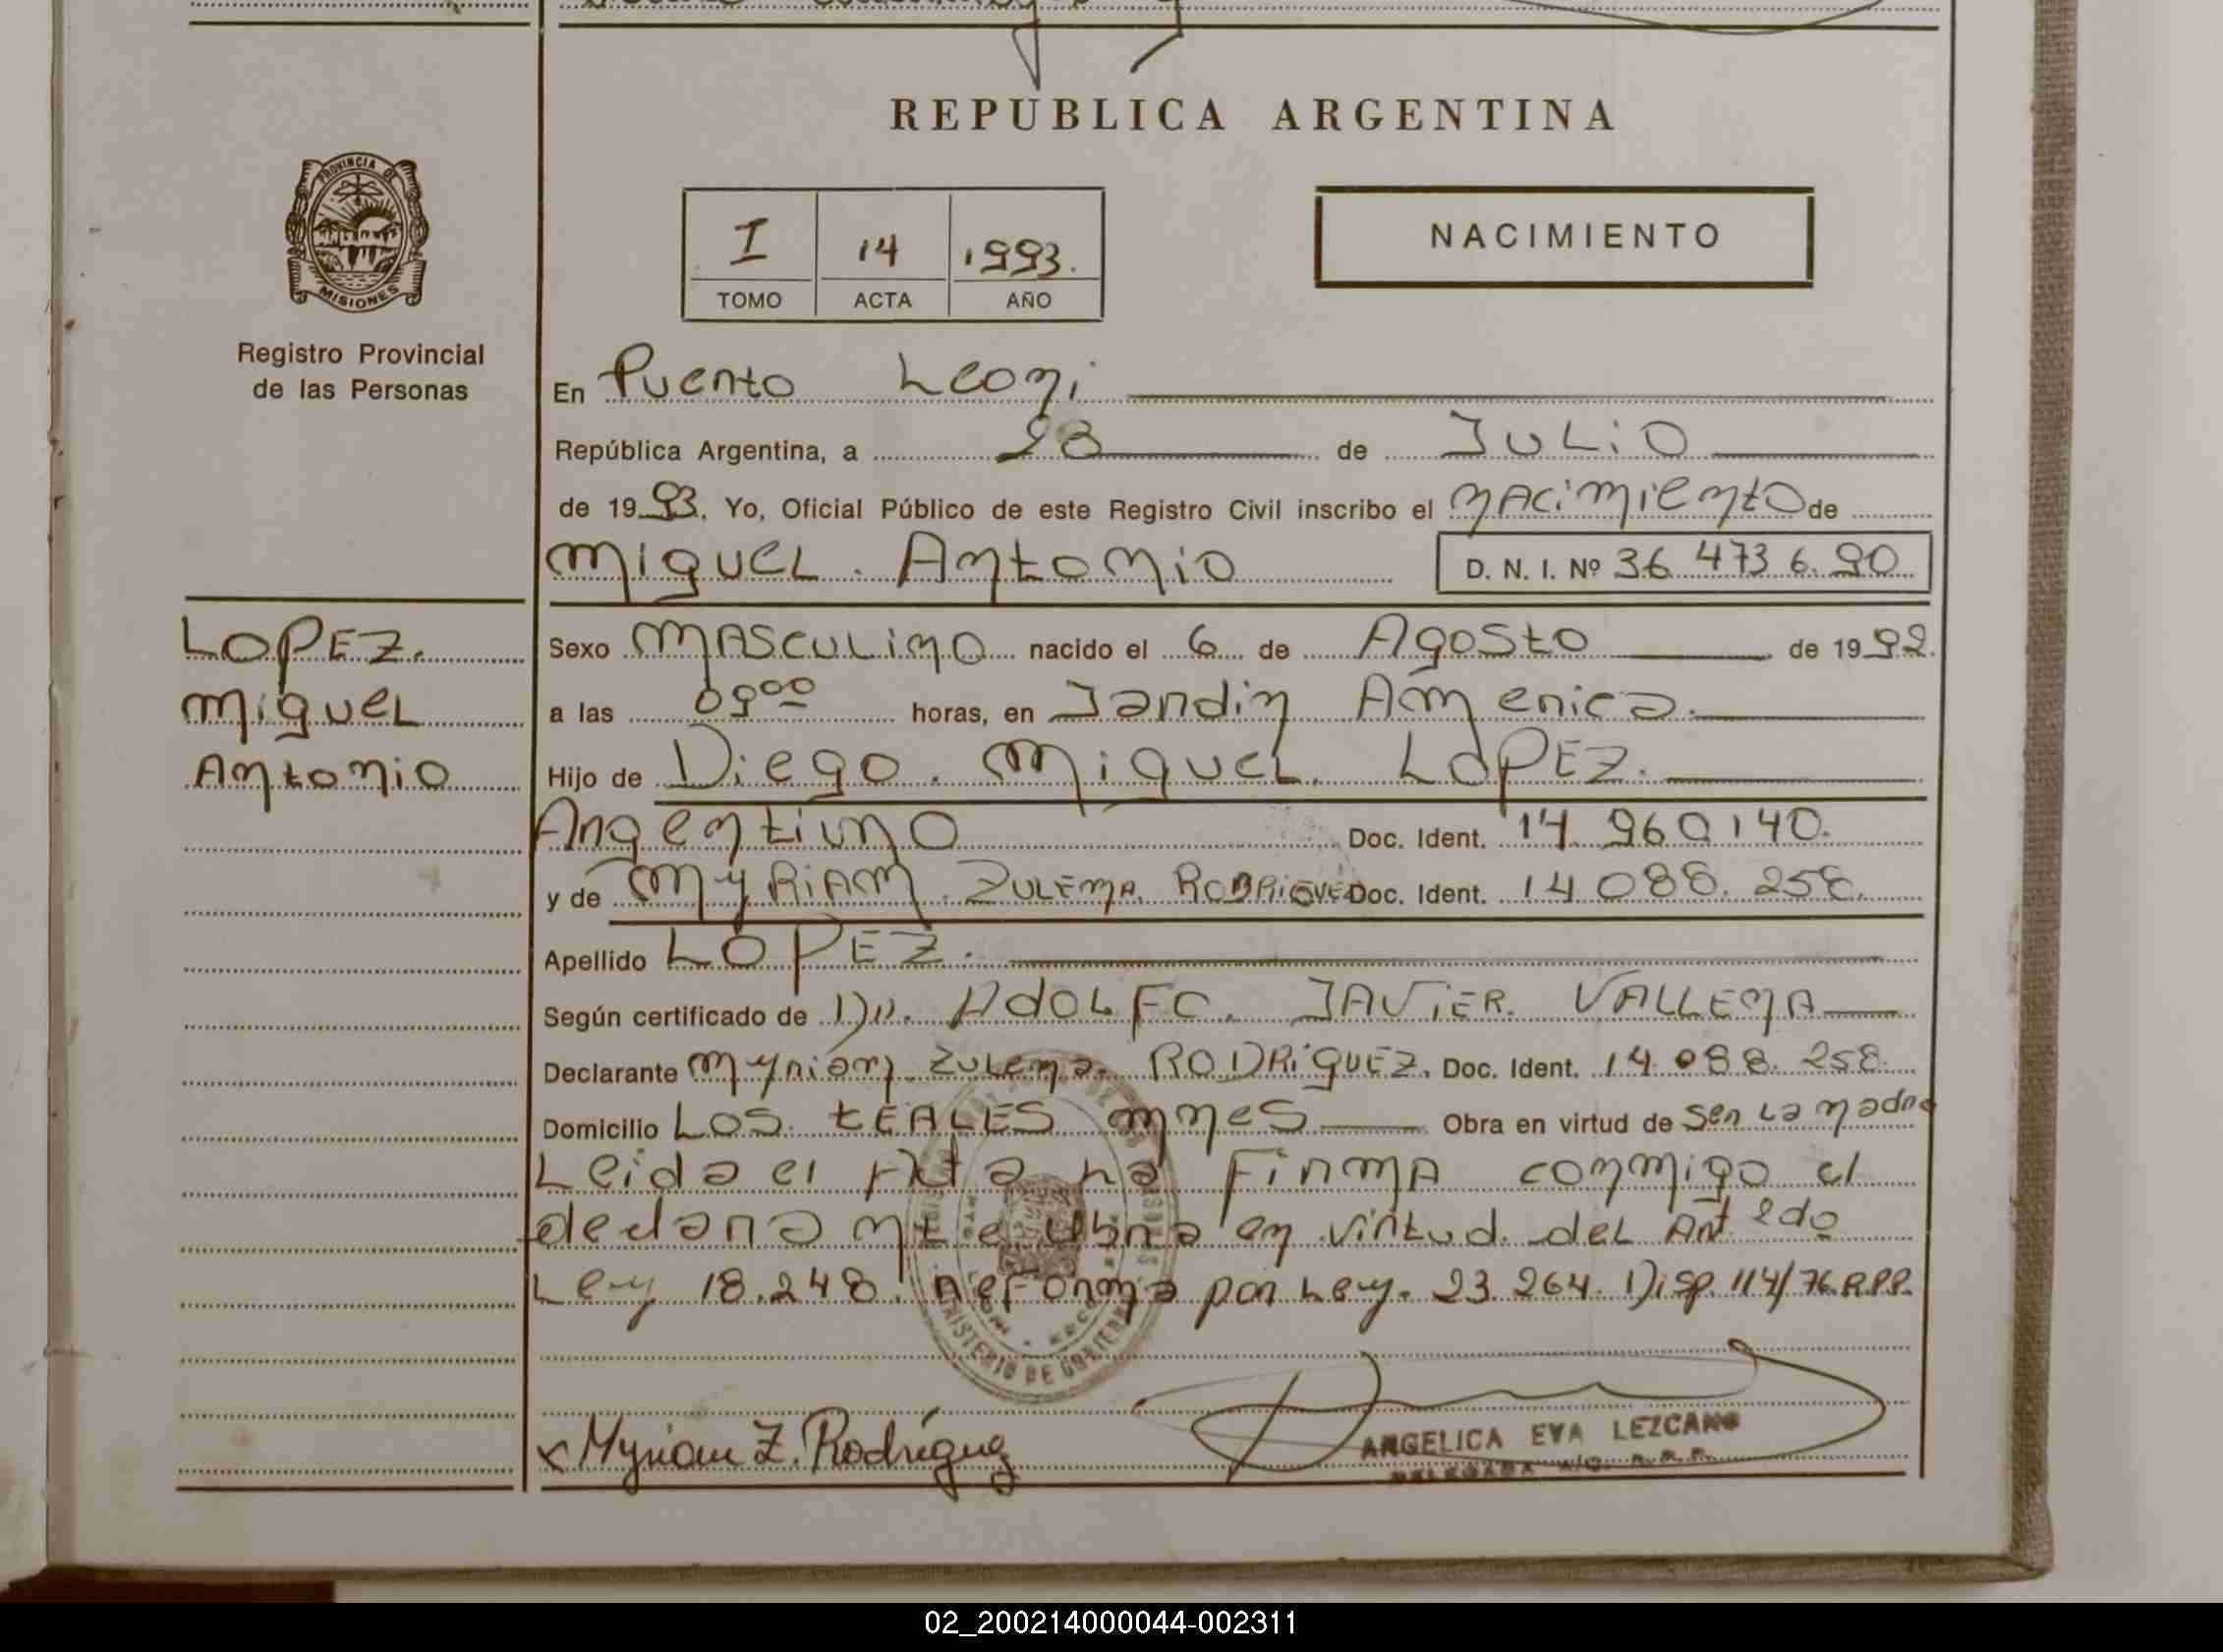 REPUBLICA ARGENTINA
PROVINCIA DE
MISIONES
Registro Provincial
de las Personas
I 14 1993.
TOMO ACTA AÑO
NACIMIENTO
En Puerto Leoni
República Argentina, a 28 de JULIO
de 1993. Yo, Oficial Público de este Registro Civil inscribo el nacimiento de
Miguel Antonio D. N. I. Nº 36 473 6.90
LOPEZ.
Miguel
Antonio
Sexo MASCULINO nacido el 6 de Agosto de 1992.
a las 09⁰⁰ horas, en Jardin America.
Hijo de Diego. Miguel. LOPEZ.
Argentino Doc. Ident. 14.960140.
y de MyRiAM. ZULEMA. RODRIGUEZ Doc. Ident. 14 088. 258.
Apellido LOPEZ.
Según certificado de Dr. ADOLFO. JAVIER. VALLEMA
Declarante Myriam Zulema. RODRiguEZ. Doc. Ident. 14.088.258.
Domicilio LOS tEALES mnes Obra en virtud de ser La madre
Leida el Acta la Firma conmigo el
declarante Obra en virtud del Art 2do
Ley 18.248. reforma por Ley. 23 264. Disp. 114/76.R.P.P.
MINISTERIO DE GOBIERNO
x Myriam Z. Rodríguez
ANGELICA EVA LEZCANO
DELEGADA
02_200214000044-002311